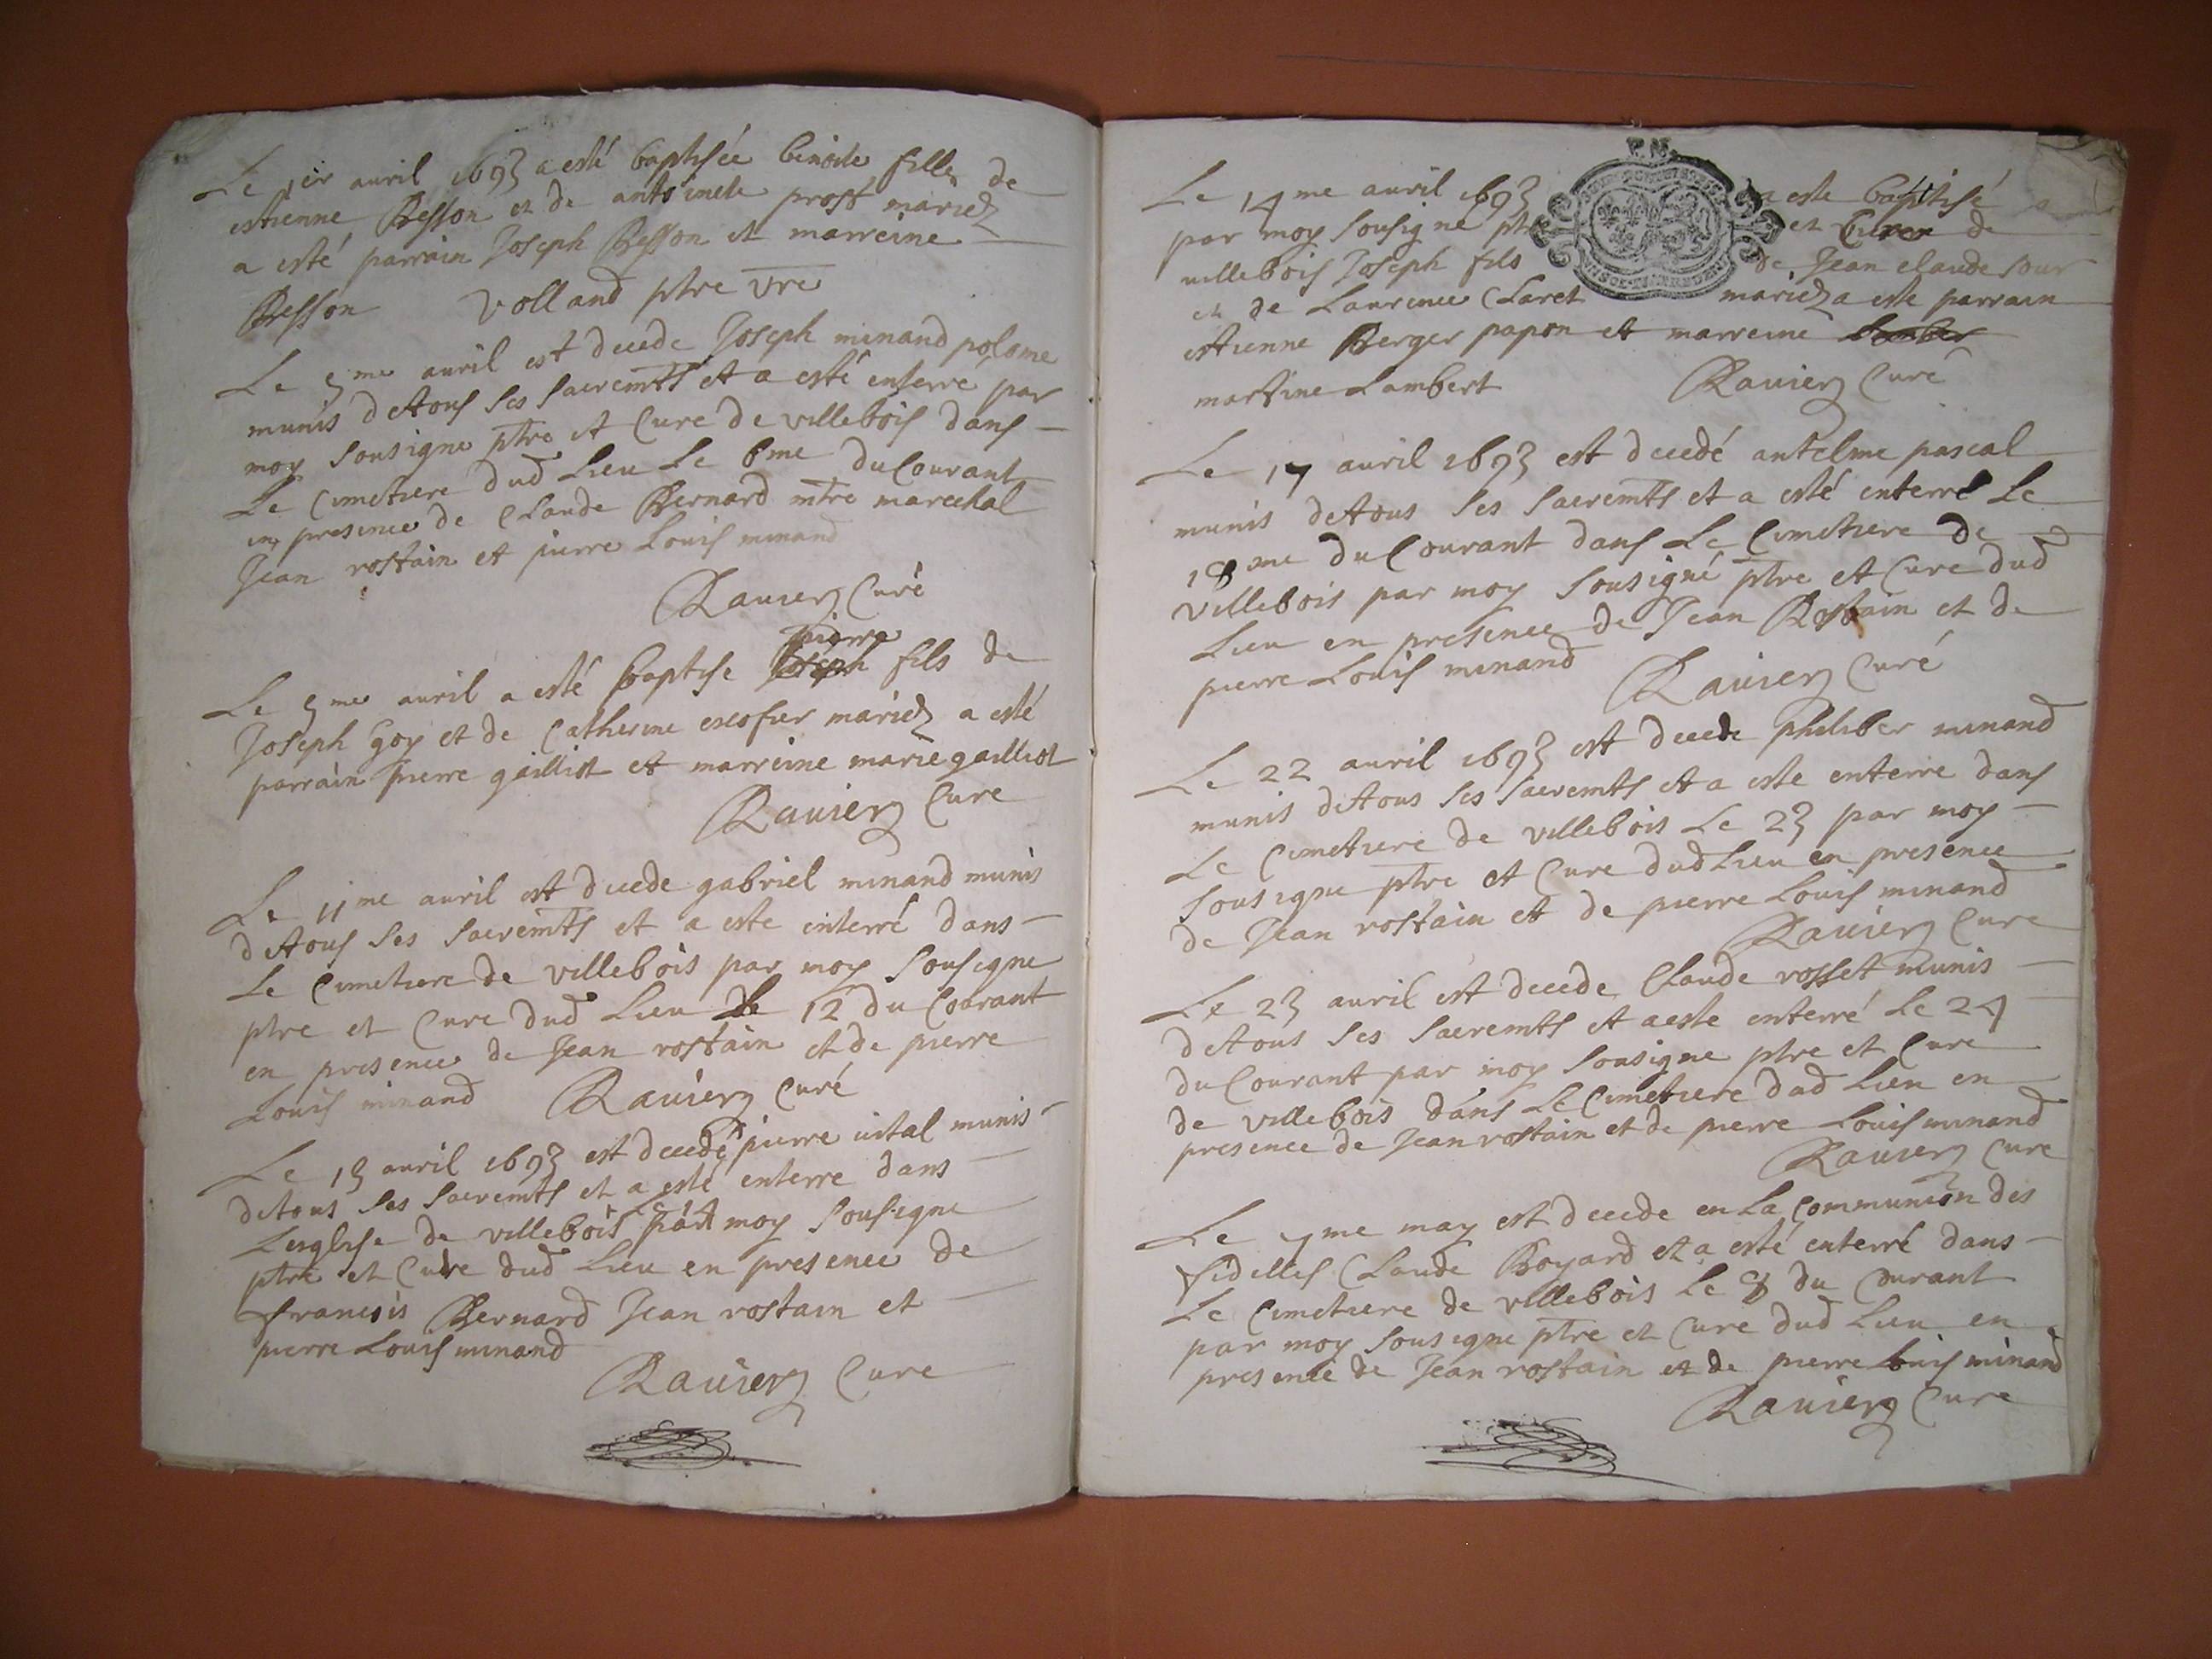 Le 1er auril 1693 a esté baptisée benoite fille de
estienne Besson et de antoinete prost mariez
a esté parrain Joseph Besson et marreine
Besson Volland ptre vre
Le 5me auril est decede Joseph minand polome
munis detous ses sacremts et a esté enterré par
moy sousigne ptre et Cure de villebois dans
Le Cimetiere dud Lieu Le 6me du Courant
en presence de Claude Bernard mtre marechal
Jean rostain et pierre Louis minand
Rauier Curé
pierre
Le 5me auril a esté baptise Joseph fils de
Joseph Goy et de Catherine excofier mariez a esté
parrain pierre gailliot et marreine marie gailliot
Rauier Cure
Le 11me auril est decede gabriel minand munis
detous ses sacremts et a este enterré dans
Le Cimetiere de villebois par moy sousigne
ptre et Cure dud Lieu Le 12 du Courant
en presence de Jean rostain et de pierre
Louis minand Rauier Curé
Le 13 auril 1693 est decedé pierre uital munis
detous ses sacremts et a esté enterre dans
Leglise de villebois par moy sousigne
ptre et Cure dud Lieu en presence de
francois Bernard Jean rostain et
pierre Louis minand
Rauier Cure
Le 14me auril 1693 a este baptisé
par moy sousigné ptre et Cure de
villebois Joseph fils de Jean claude sour
et de Laurence Claret mariez a este parrain
estienne Berger papon et marreine
martine Lambert Rauier Curé
Le 17 auril 1693 est decedé antelme pascal
munis detous ses sacremts et a esté enterré Le
18me du Courant dans Le Cimetiere de
villebois par moy sousigné ptre et Cure dud
Lieu en presence de Jean Rostain et de
pierre Louis minand Rauier Curé
Le 22 auril 1693 est decede philiber minand
munis detous ses sacremts et a este enterre dans
Le Cimetiere de villebois Le 23 par moy
sousigne ptre et Cure dud Lieu en presence
de Jean rostain et de pierre Louis minand
Rauier Cure
Le 23 auril est decede Claude rosset munis
detous ses sacremts et aeste enterré Le 24
du Courant par moy sousigne ptre et Cure
de villebois dans Le Cimetiere dud Lieu en
presence de Jean rostain et de pierre Louis minand
Rauier Cure
Le 7me may est decede en La Communion des
fidelles Claude Boyard et a esté enterré dans
Le Cimetiere de villebois Le 8 du Courant
par moy sousigne ptre et Cure dud Lieu en
presence de Jean rostain et de pierre Louis minand
Rauier Cure